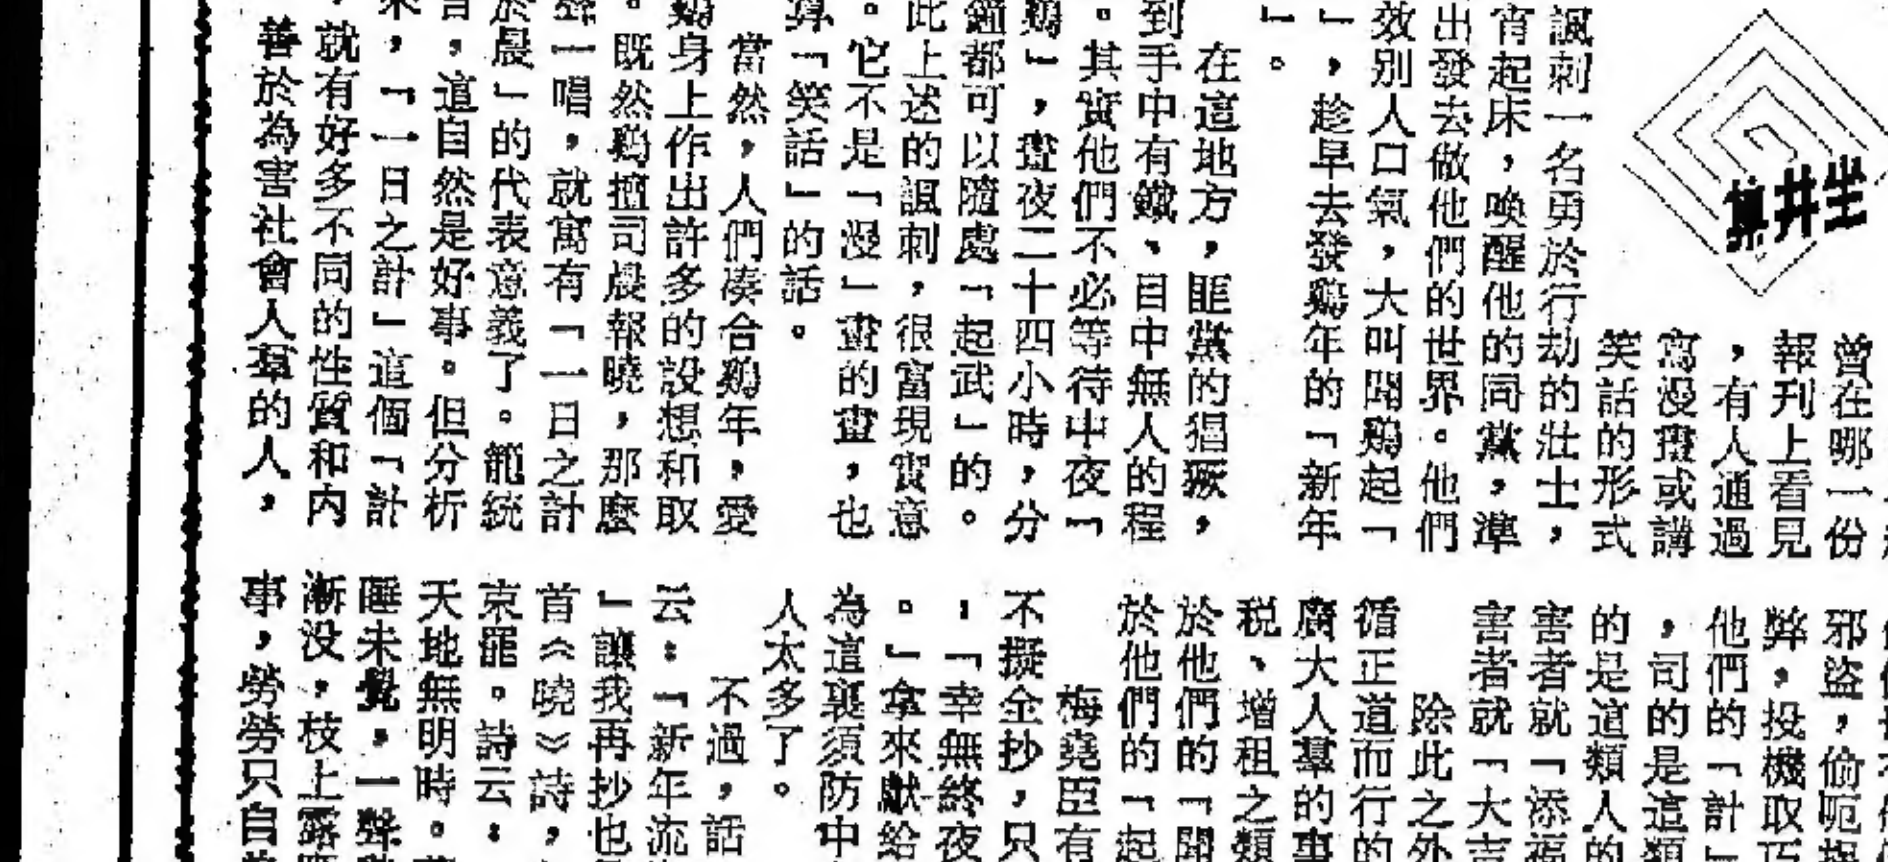 坐井集
曾在哪一份
報刊上看見
，有人通過
寫漫畫或講
笑話的形式
諷刺一名勇於行劫的壯士，
宵起床，喚醒他的同黨，準
出發去做他們的世界。他們
效別人口氣，大叫聞鷄起「
」，趁早去發鷄年的「新年
」。
在這地方，匪黨的猖獗，
到手中有鐵、目中無人的程
。其實他們不必等待中夜「
鷄」，晝夜二十四小時，分
鐘都可以隨處「起武」的。
此上述的諷刺，很富現實意
。它不是「漫」畫的畫，也
算「笑話」的話。
當然，人們湊合鷄年，愛
鷄身上作出許多的設想和取
。既然鷄擅司晨報曉，那麼
聲一唱，就寓有「一日之計
於晨」的代表意義了。籠統
言，這自然是好事。但分析
來，「一日之計」這個「計
，就有好多不同的性質和內
善於為害社會人羣的人，
邪盜，偷呃
弊，投機取巧
他們的「計」
，司的是這類
的是這類人的
害者就「添福
害者就「大吉
除此之外
循正道而行的
廣大人羣的事
税、增租之類
於他們的「聞
於他們的「起
梅堯臣有
不擬全抄，只
：「幸無終夜
。」拿來獻給
為這裏須防中
人太多了。
不過，話
云：「新年流
」讓我再抄也
首《曉》詩，
束罷。詩云：
天地無明時。
睡未覺，一聲
漸没，枝上露
事，勞勞只自